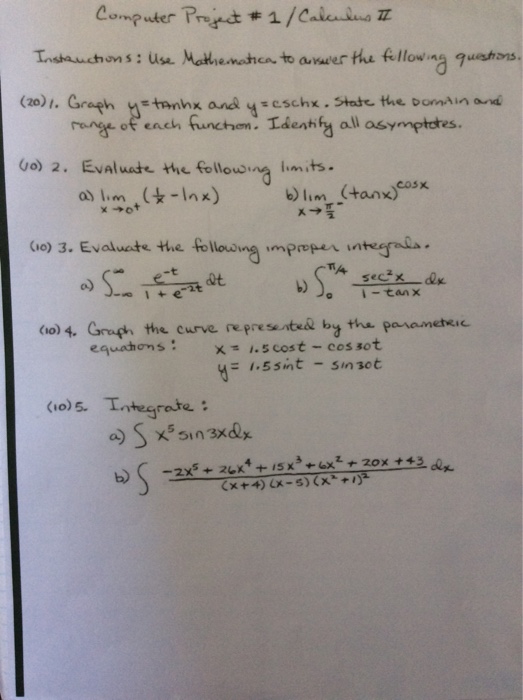 Computer Project # 1 / Calculus II
Instructions: Use Mathematica to answer the following questions.
(20) 1. Graph y = tanhx and y = cschx. State the Domain and
range of each function. Identify all asymptotes.
(10) 2. Evaluate the following limits.
a) lim x→0+ (1/x - ln x) b) lim x→π/2- (tanx)^cosx
(10) 3. Evaluate the following improper integrals.
a) ∫_-∞^∞ e^-t / (1 + e^-2t) dt b) ∫_0^π/4 sec²x / (1 - tanx) dx
(10) 4. Graph the curve represented by the parametric
equations: x = 1.5 cost - cos 30t
y = 1.5 sint - sin 30t
(10) 5. Integrate:
a) ∫ x⁵ sin 3x dx
b) ∫ (-2x⁵ + 26x⁴ + 15x³ + 6x² + 20x + 43) / ((x+4)(x-5)(x²+1)²) dx